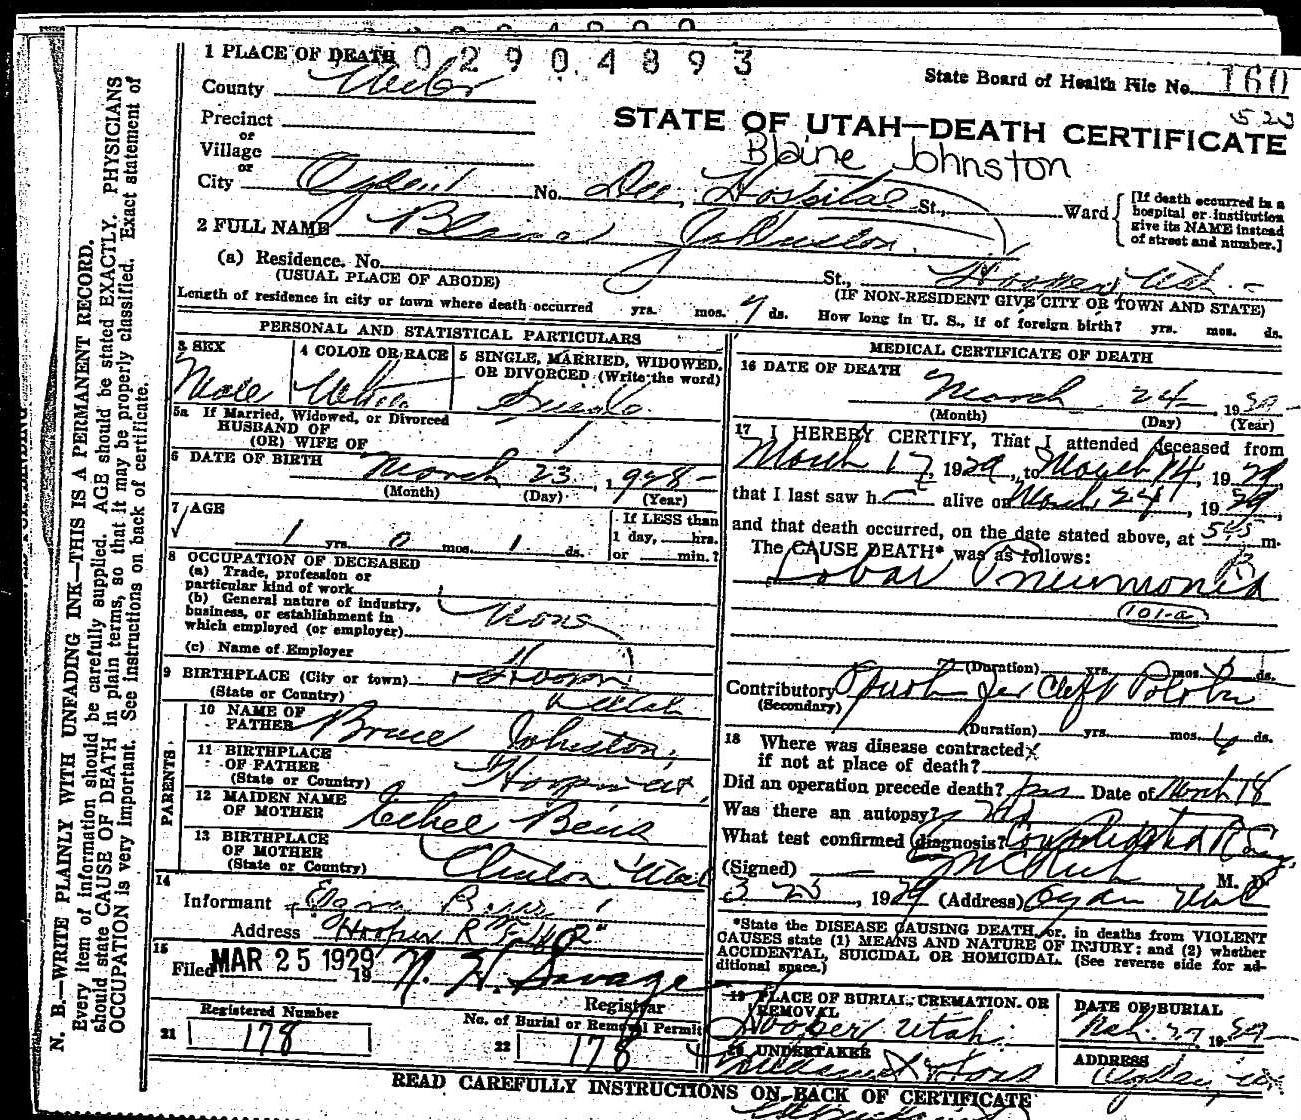 1 PLACE OF DEATH 02904893
State Board of Health File No. 160
County Weber
523
Precinct
STATE OF UTAH—DEATH CERTIFICATE
or
Village
Blaine Johnston
or
City Ogden No. Dee Hospital St., Ward
[If death occurred in a hospital or institution give its NAME instead of street and number.]
2 FULL NAME Blaine Johnston
(a) Residence. No. St., Hooper, Utah.
(USUAL PLACE OF ABODE) (IF NON-RESIDENT GIVE CITY OR TOWN AND STATE)
Length of residence in city or town where death occurred yrs. mos. 7 ds. How long in U. S., if of foreign birth? yrs. mos. ds.
PERSONAL AND STATISTICAL PARTICULARS
3 SEX
Male
4 COLOR OR RACE
White
5 SINGLE, MARRIED, WIDOWED, OR DIVORCED (Write the word)
Single
5a If Married, Widowed, or Divorced
HUSBAND OF
(OR) WIFE OF
6 DATE OF BIRTH March 23, 1928
(Month) (Day) (Year)
7 AGE
1 yrs. 0 mos. 1 ds.
If LESS than
1 day, hrs.
or min.?
8 OCCUPATION OF DECEASED
(a) Trade, profession or
particular kind of work
(b) General nature of industry,
business, or establishment in
which employed (or employer) None
(c) Name of Employer
9 BIRTHPLACE (City or town) Hooper
(State or Country) Utah
PARENTS
10 NAME OF
FATHER Bruce Johnston
11 BIRTHPLACE
OF FATHER
(State or Country) Hooper Ut.
12 MAIDEN NAME
OF MOTHER Ethel Beus
13 BIRTHPLACE
OF MOTHER
(State or Country) Clinton Utah
14
Informant
Address Hooper
15
Filed MAR 25 1929 19 N. H. Savage
Registrar
Registered Number
21 178
No. of Burial or Removal Permit
22 178
MEDICAL CERTIFICATE OF DEATH
16 DATE OF DEATH
March 24, 1929
(Month) (Day) (Year)
17 I HEREBY CERTIFY, That I attended deceased from
March 17, 1929, to March 24, 1929,
that I last saw h alive on March 24, 1929,
and that death occurred, on the date stated above, at 545 m.
The CAUSE DEATH* was as follows:
Lobar Pneumonia
101-a
(Duration) yrs. mos. ds.
Contributory Cleft Palate
(Secondary)
(Duration) yrs. mos. 6 ds.
18 Where was disease contracted
if not at place of death?
Did an operation precede death? yes Date of March 18
Was there an autopsy? No
What test confirmed diagnosis?
(Signed) M. D.
3 23, 1929 (Address) Ogden Utah
*State the DISEASE CAUSING DEATH, or, in deaths from VIOLENT
CAUSES state (1) MEANS AND NATURE OF INJURY; and (2) whether
ACCIDENTAL, SUICIDAL OR HOMICIDAL. (See reverse side for additional space.)
19 PLACE OF BURIAL, CREMATION, OR
REMOVAL
Hooper Utah.
DATE OF BURIAL
Mch. 27 1929
20 UNDERTAKER
& Sons
ADDRESS
Ogden, Ut
READ CAREFULLY INSTRUCTIONS ON BACK OF CERTIFICATE
N. B.—WRITE PLAINLY WITH UNFADING INK—THIS IS A PERMANENT RECORD.
Every item of information should be carefully supplied. AGE should be stated EXACTLY. PHYSICIANS
should state CAUSE OF DEATH in plain terms, so that it may be properly classified. Exact statement of
OCCUPATION is very important. See instructions on back of certificate.